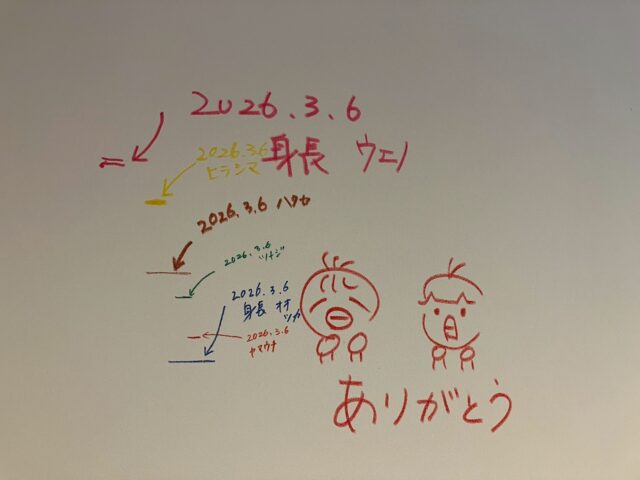 2026.3.6
身長 ウエノ
2026.3.6
ヒラシマ
2026.3.6
2026.3.6
ツナジ
2026.3.6
身長 オオ
ツカ
2026.3.6
ヤマウチ
ありがとう